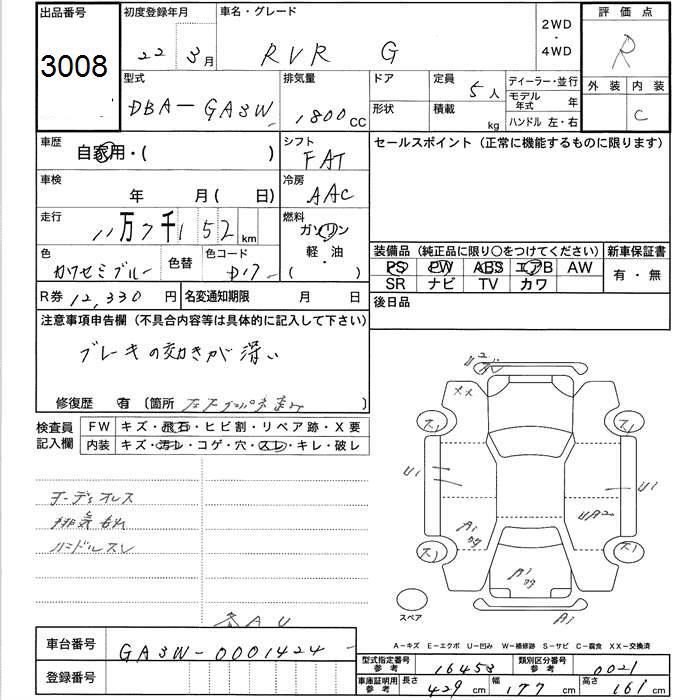 出品番号 初度登録年月 車名・グレード 2WD・4WD 評価点
3008 22 3月 RVR G R
型式 排気量 ドア 定員 5人 ディーラー・並行 外装 内装
DBA-GA3W 1800cc 形状 積載 kg モデル年式 年 C
ハンドル 左・右
車歴 自家用・( ) シフト FAT セールスポイント (正常に機能するものに限ります)
車検 年 月( 日) 冷房 AAC
走行 11万7千152km 燃料 ガソリン
軽・油
( )
色 カワセミブルー 色替 色コード D17
装備品 (純正品に限り○をつけてください) 新車保証書
PS PW ABS エアB AW 有・無
SR ナビ TV カワ
R券 12,330円 名変通知期限 月 日 後日品
注意事項申告欄 (不具合内容等は具体的に記入して下さい)
ブレーキの効きが深い
修復歴 有 (箇所 )
検査員記入欄 FW キズ・飛石・ヒビ割・リペア跡・X要
内装 キズ・汚レ・コゲ・穴・スレ・キレ・破レ
オーディオレス
排気もれ
ハンドルスレ
U2
XX
スリ スリ
U1 U1
UA2
A1
A1
スリ スリ
A1
スペア
AU
A-キズ E-エクボ U-凹み W-補修跡 S-サビ C-腐食 XX-交換済
車台番号 GA3W-0001424
登録番号
型式指定番号参考 16453 類別区分番号参考 0021
車庫証明用参考 長さ 429cm 幅 177cm 高さ 161cm